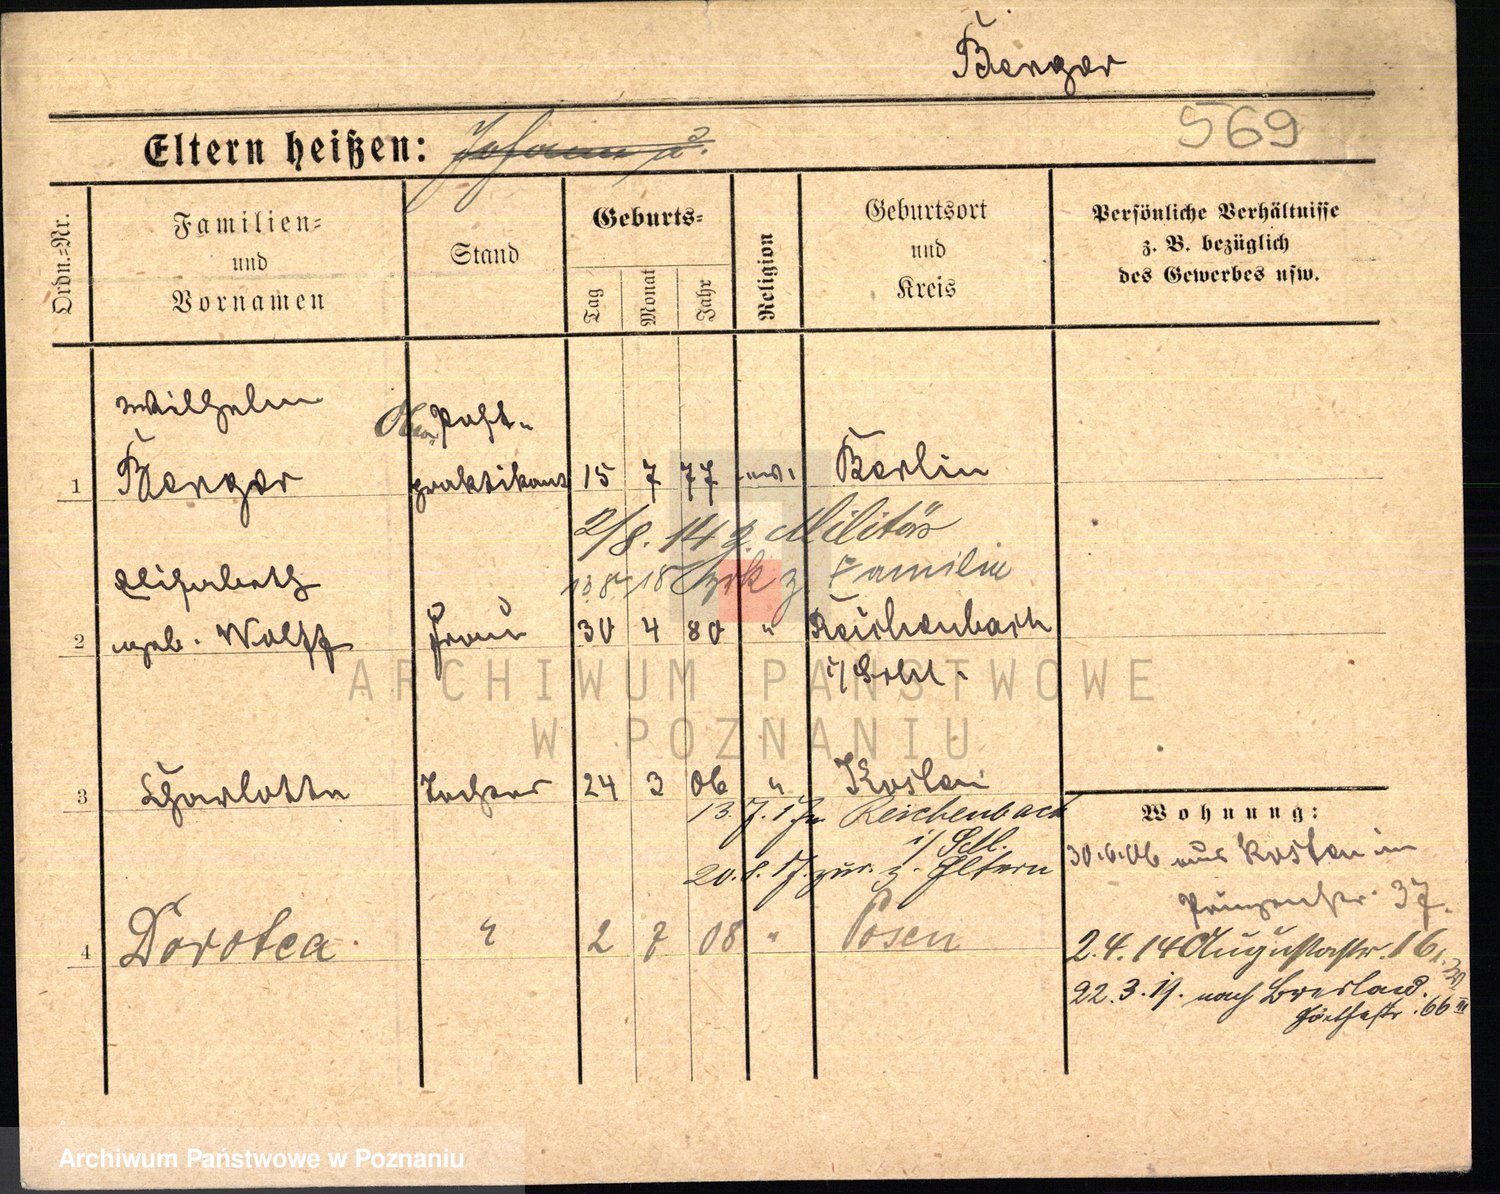 Berger
569
Eltern heißen: Johann u.
Ordn.=Nr.
Familien=
und
Vornamen
Stand
Geburts=
Tag
Monat
Jahr
Religion
Geburtsort
und
Kreis
Persönliche Verhältnisse
z. B. bezüglich
des Gewerbes usw.
Wilhelm
Ober Post-
1 Berger praktikant 15 7 77 ev. Berlin
2/8. 14 z. Militär
18 zrk z Familie
Elisabeth
2 geb. Wolff Frau 30 4 80 " Reichenbach
i/ Schl.
3 Charlotte Tochter 24 3 06 " Kosten
13. 7. 17 n Reichenbach
i/ Schl.
20. 8. 17. zur. z. Eltern
4 Dorotea " 2 7 08 " Posen
Wohnung:
30.6.06 aus Kosten
Prinzenstr. 37.
2.4.14 Augustastr. 16
22.3.19. nach Breslau.
Göethestr. 66 III
ARCHIWUM PAŃSTWOWE
W POZNANIU
Archiwum Państwowe w Poznaniu